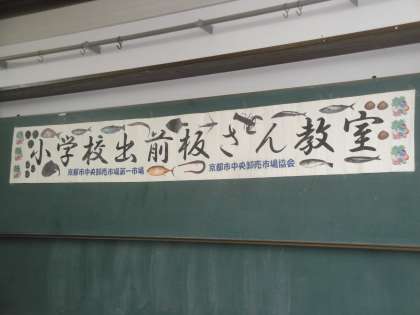 小学校出前板さん教室
京都市中央卸売市場第一市場 京都市中央卸売市場協会